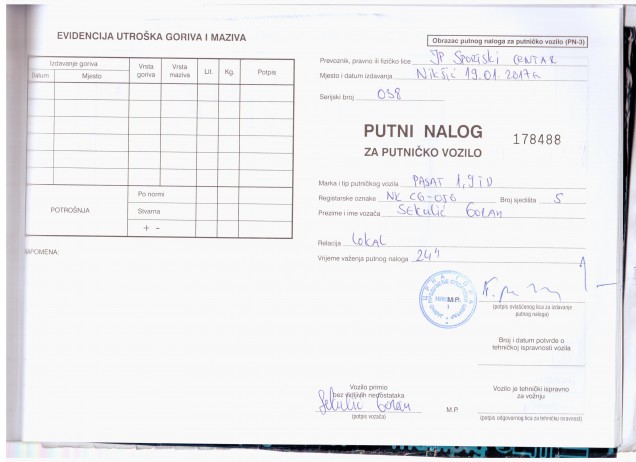 EVIDENCIJA UTROŠKA GORIVA I MAZIVA
Izdavanje goriva
Datum Mjesto Vrsta goriva Vrsta maziva Lit. Kg. Potpis
POTROŠNJA
Po normi
Stvarna
+ -
NAPOMENA:
Obrazac putnog naloga za putničko vozilo (PN-3)
Prevoznik, pravno ili fizičko lice JP Sportski centar
Mjesto i datum izdavanja Nikšić 19.01.2017g
Serijski broj 038
PUTNI NALOG 178488
ZA PUTNIČKO VOZILO
Marka i tip putničkog vozila PASAT 1,9
Registarske oznake NK CG-056 Broj sjedišta 5
Prezime i ime vozača Sekulić Goran
Relacija Lokal
Vrijeme važenja putnog naloga 24h
M.P.
(potpis ovlašćenog lica za izdavanje
putnog naloga)
Broj i datum potvrde o
tehničkoj ispravnosti vozila
Vozilo primio
bez vidljivih nedostataka
Sekulić Goran
(potpis vozača)
M.P.
Vozilo je tehnički ispravno
za vožnju
(potpis odgovornog lica za tehničku ispravnost)